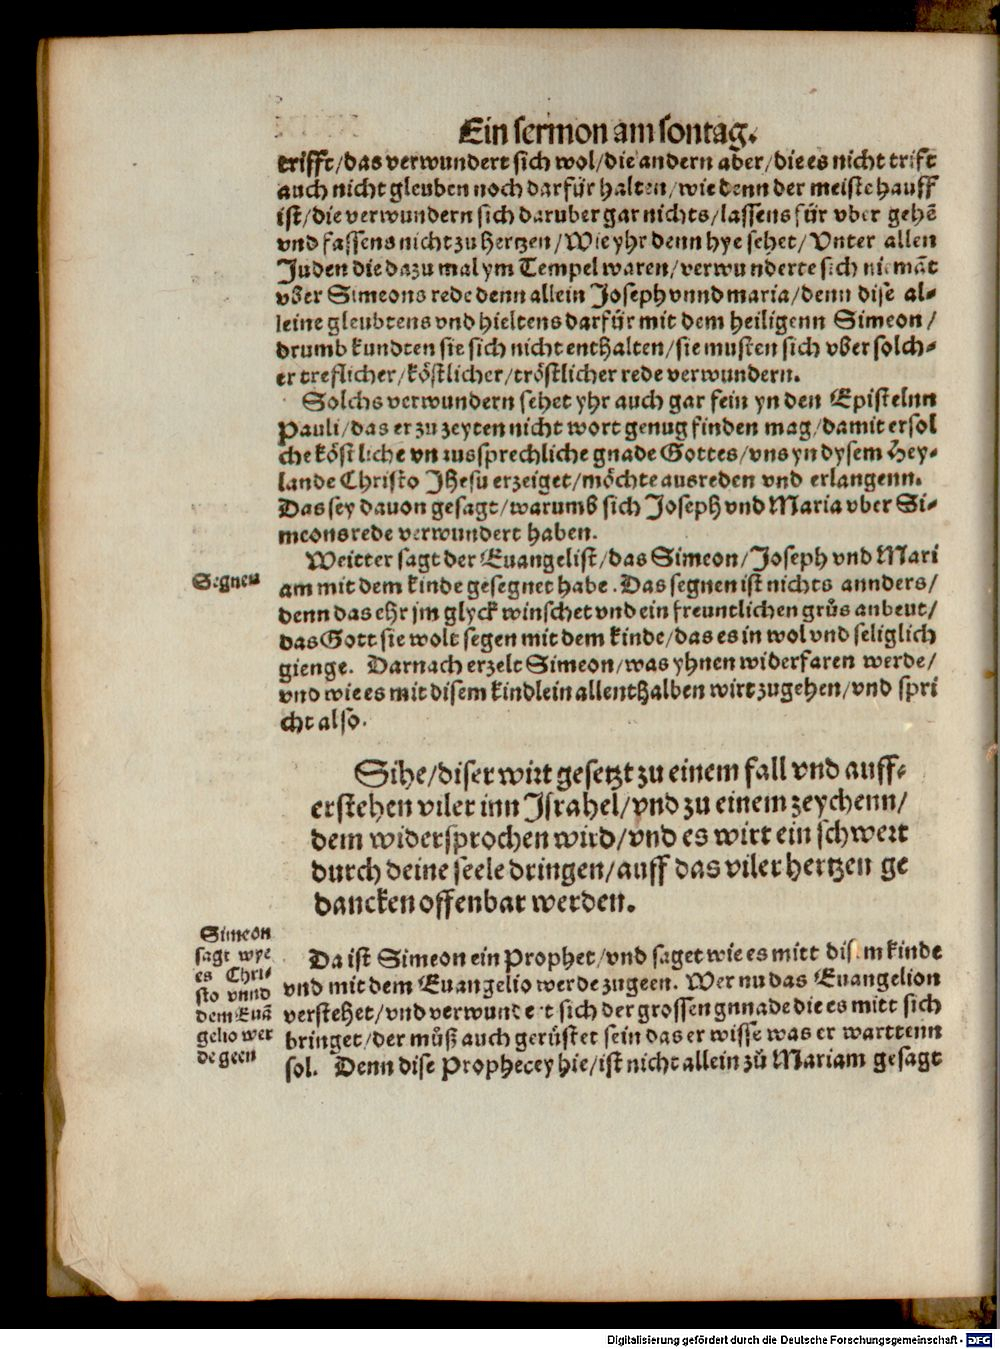 Ein sermon am sontag.
trifft/das verwundert sich wol/die andern aber/die es nicht trift
auch nicht gleuben noch darfür halten/wie denn der meiste hauff
ist/die verwundern sich daruber gar nichts/lassens für vber gehē
vnd fassens nicht zu hertzen/Wie yhr denn hye sehet/Vnter allen
Juden die dazu mal ym Tempel waren/verwunderte sich niemāt
vber Simeons rede denn allein Joseph vnnd maria/denn dise al-
leine gleubtens vnd hieltens darfür mit dem heiligenn Simeon/
drumb kundten sie sich nicht enthalten/sie musten sich vber solch-
er treflicher/köstlicher/tröstlicher rede verwundern.
Solchs verwundern sehet yhr auch gar fein yn den Epistelnn
Pauli/das er zu zeyten nicht wort genug finden mag/damit er sol
che köstliche vnaussprechliche gnade Gottes/vns yn dysem Hey-
lande Christo Jhesu erzeiget/möchte ausreden vnd erlangenn.
Das sey dauon gesagt/warumb sich Joseph vnd Maria vber Si-
meons rede verwundert haben.
Weitter sagt der Euangelist/das Simeon/Joseph vnd Mari
Segnen
am mit dem kinde gesegnet habe. Das segnen ist nichts annders/
denn das ehr jm glyck winschet vnd ein freuntlichen grůs anbeut/
das Gott sie wolt segen mit dem kinde/das es in wol vnd seliglich
gienge. Darnach erzelt Simeon/was yhnen widerfaren werde/
vnd wie es mit disem kindlein allenthalben wirt zugehen/vnd spri
cht also.
Sihe/diser wirt gesetzt zu einem fall vnd auff-
erstehen viler inn Jsrahel/vnd zu einem zeychenn/
dem widersprochen wird/vnd es wirt ein schwert
durch deine seele dringen/auff das viler hertzen ge
dancken offenbar werden.
Simeon
sagt wye
es Chri-
sto vnnd
dem Euā
gelio wer
de geen
Da ist Simeon ein Prophet/vnd saget wie es mitt disem kinde
vnd mit dem Euangelio werde zugeen. Wer nu das Euangelion
verstehet/vnd verwundert sich der grossen gnnade die es mitt sich
bringet/der můß auch gerüstet sein das er wisse was er warttenn
sol. Denn dise Prophecey hie/ist nicht allein zů Mariam gesagt
Digitalisierung gefördert durch die Deutsche Forschungsgemeinschaft - DFG